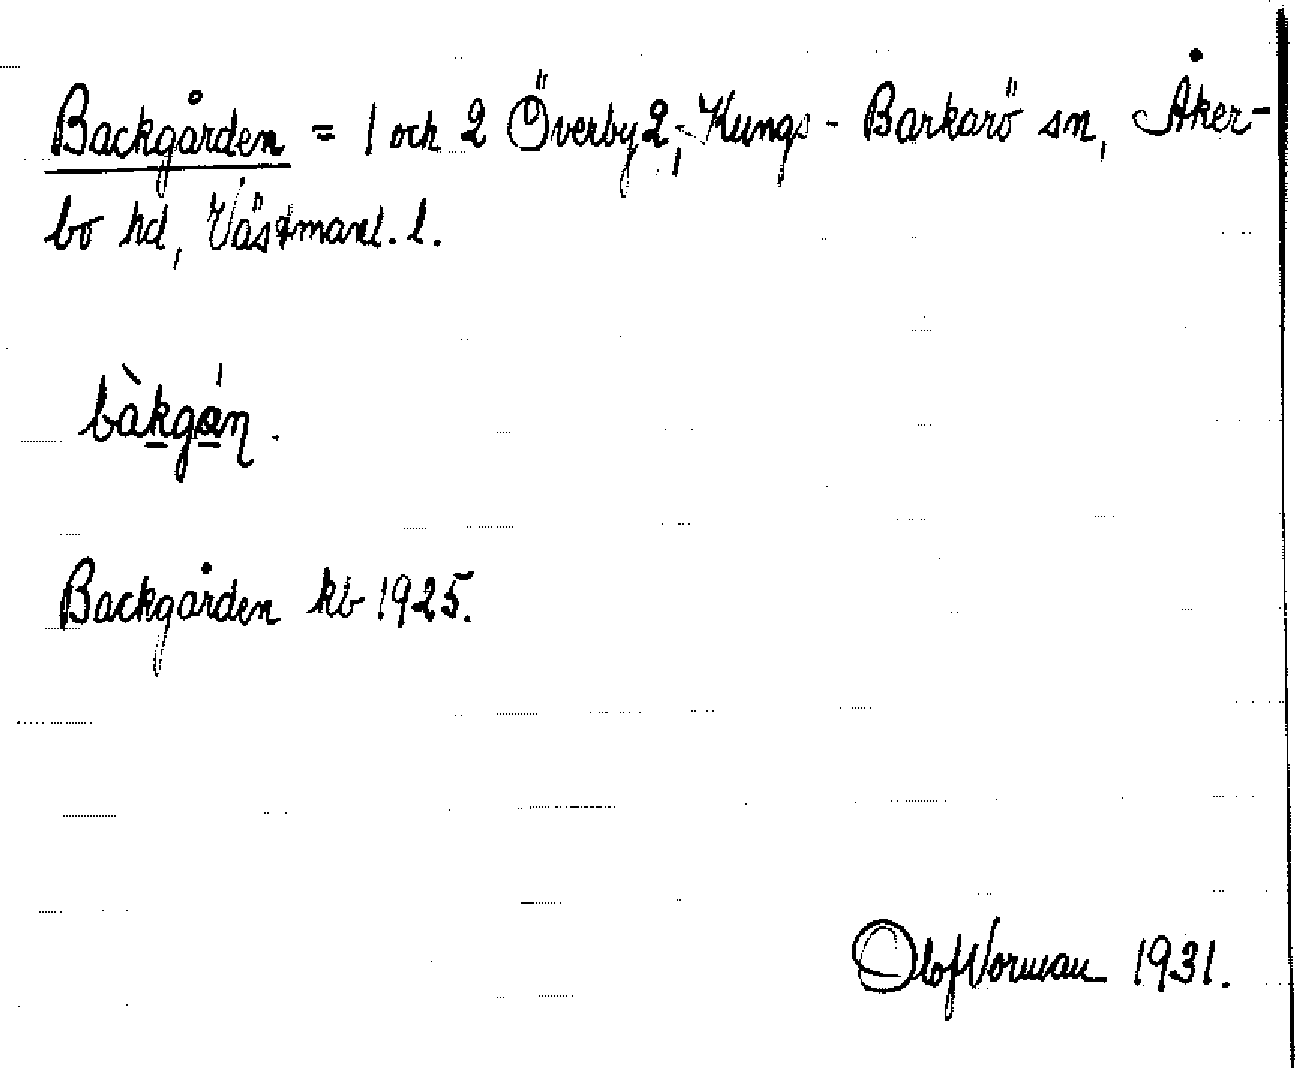 Backgården = 1 och 2 Överby 2, Kungs-Barkarö sn, Åker-
bo hd, Västmanl. l.
bàkgá̱ṇ.
Backgården kb 1925.
Olof Norman 1931.